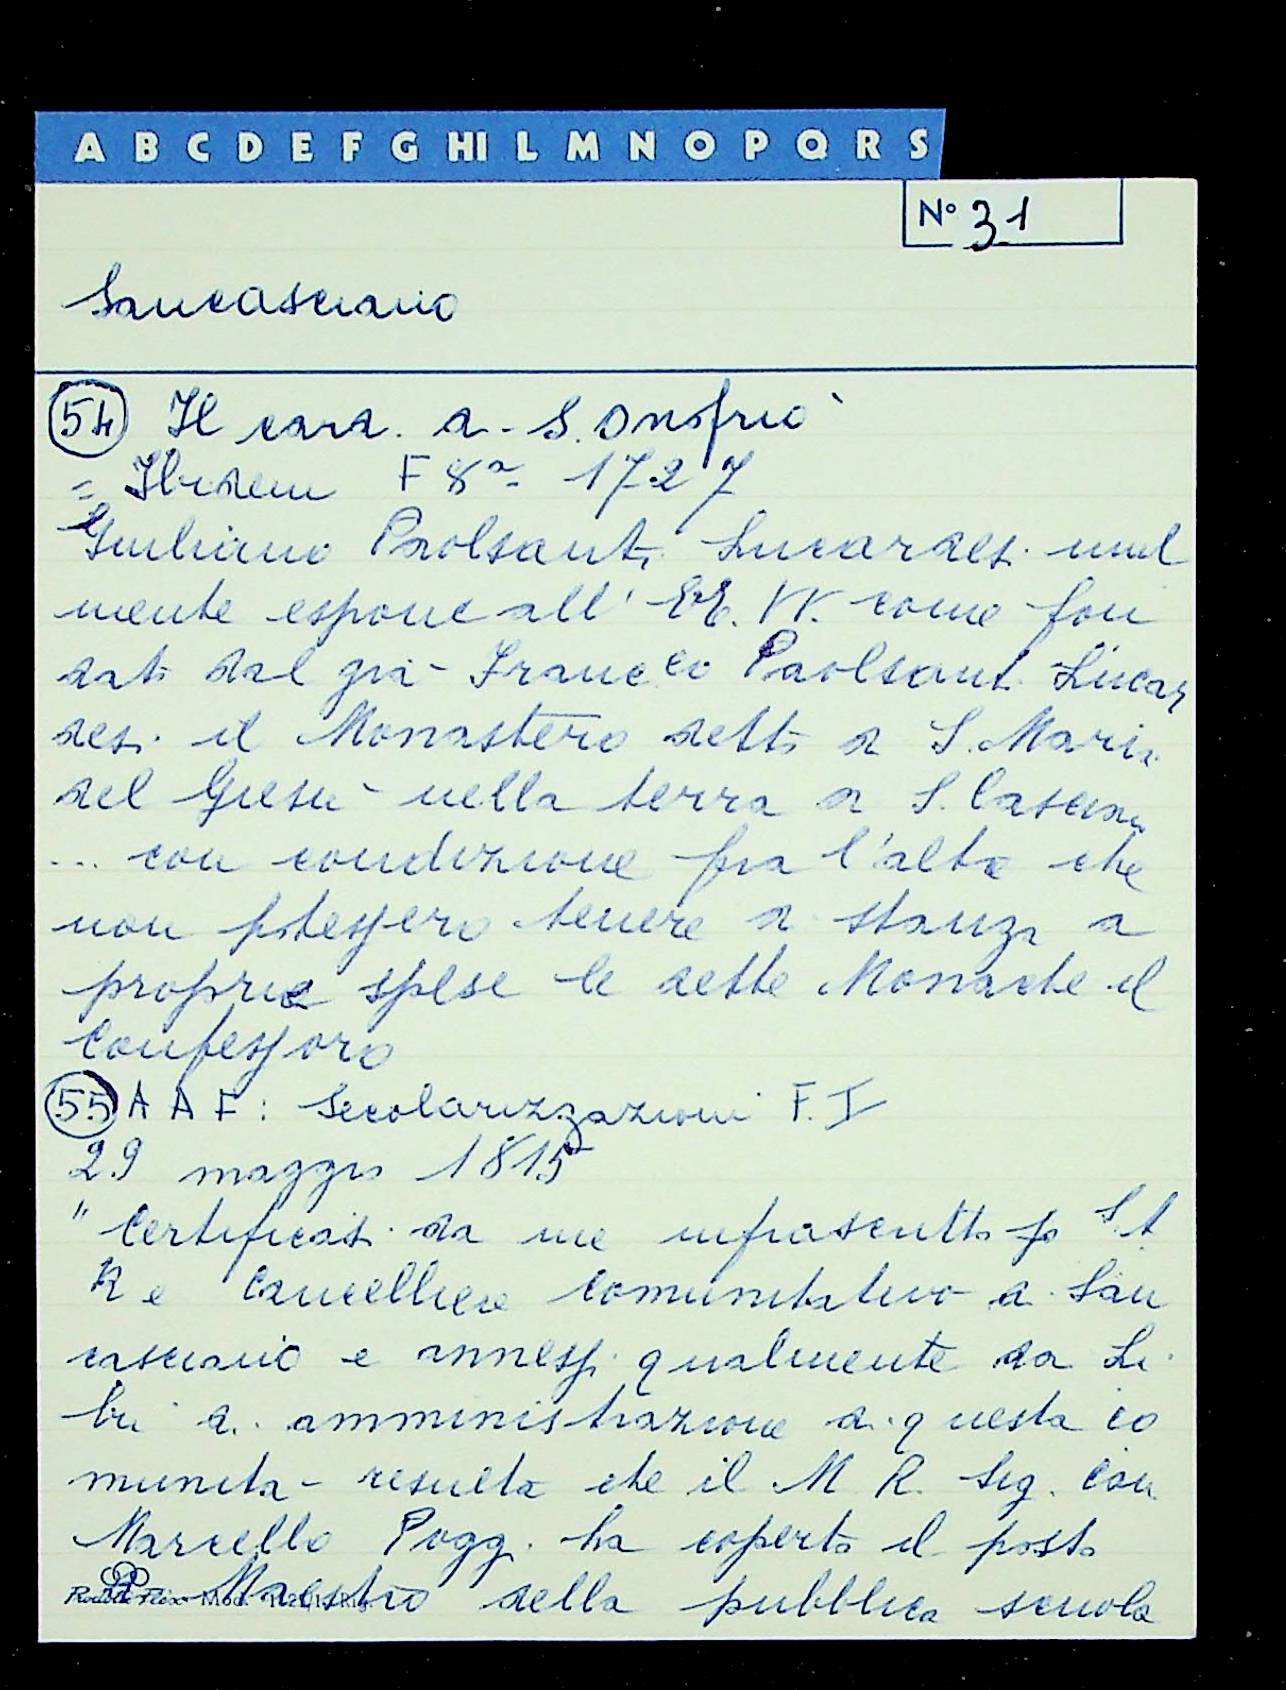 A B C D E F G HI L M N O P Q R S
N° 31
Sancasciano
54 Il card. di S. Onofrio
= Ibidem F 8ª 1727
Giuliano Paolsanti Lucardesi umil
mente espone all' EE. VV. come fon
dato dal già Franc co Paolsanti Lucar
desi il Monastero detto di S. Maria
del Giesù nella terra di S. Casciano
... con condizione fra l'altre che
non potessero tenere di stanza a
proprie spese le dette Monache il
Confessoro
55 A A F: Secolarizzazioni F. I
29 maggio 1815
" Certificasi da me infrascritto
R e Cancelliere Comunitativo di San
casciano e annessi qualmente da Li
bri di amministrazione di questa co
munità resulta che il M R. Sig. Can
Marcello Poggi ha coperto il posto
di Maestro della pubblica scuola